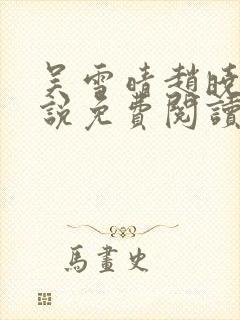 吴雪晴趙曉
說免費閱讀
馬畫史